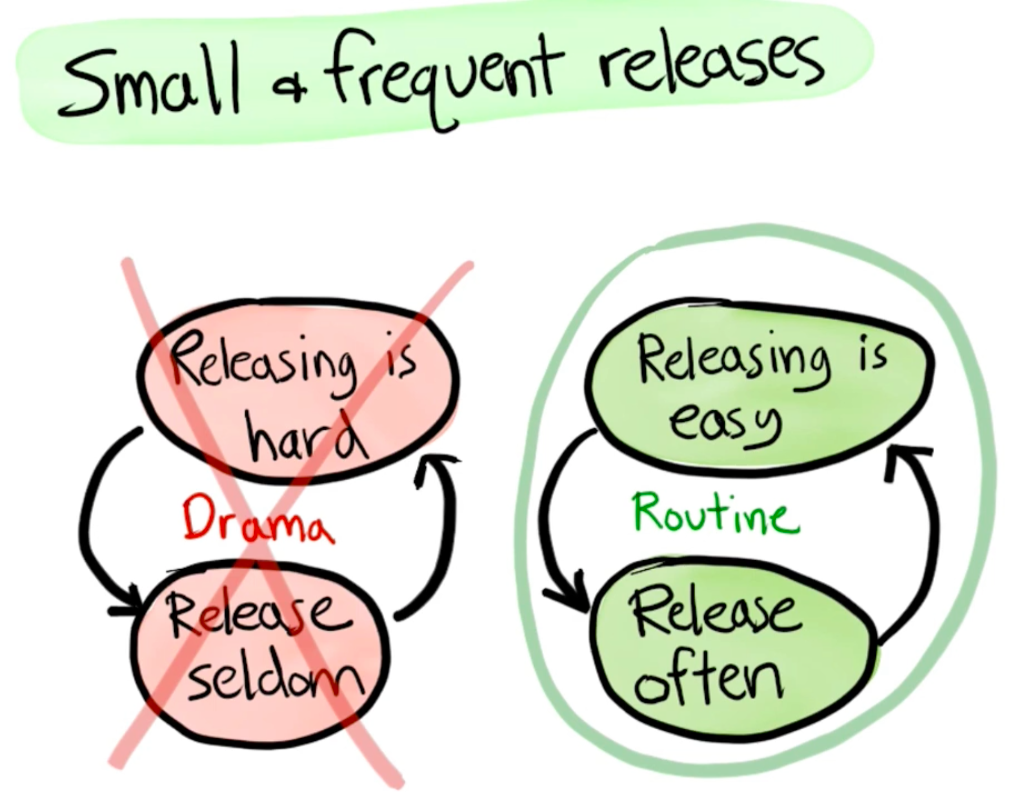 Small & frequent releases
Releasing is
hard
Drama
Release
seldom
Releasing is
easy
Routine
Release
often